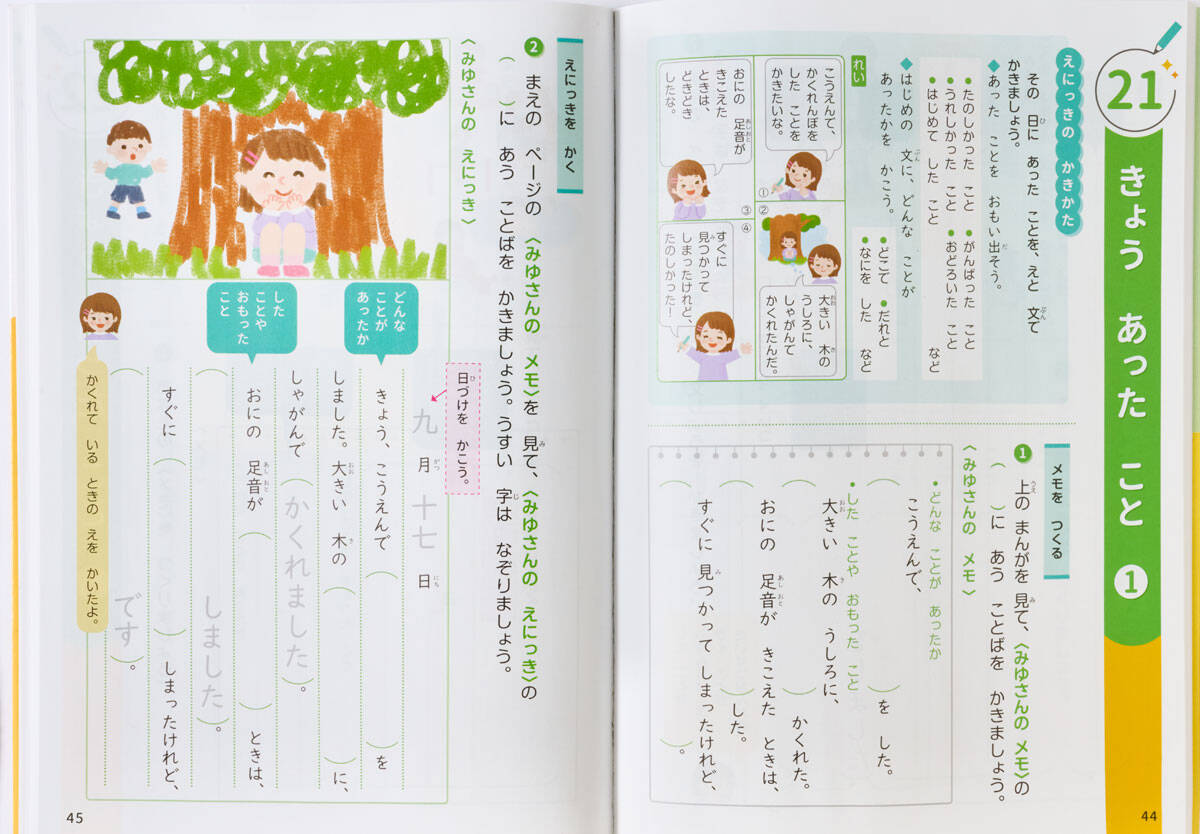 21
きょう あった こと 1
えにっきの かきかた
その 日に あった ことを、えと 文で
かきましょう。
◆あった ことを おもい出そう。
•たのしかった こと •がんばった こと
•うれしかった こと •おどろいた こと
•はじめて した こと など
◆はじめの 文に、どんな ことが
あったかを かこう。
•どこで •だれと
•なにを した など
れい
こうえんで、
かくれんぼを
した ことを
かきたいな。
①
②
大きい 木の
うしろに、
しゃがんで
かくれたんだ。
おにの 足音が
きこえた
ときは、
どきどき
したな。
③
④
すぐに
見つかって
しまったけれど、
たのしかった!
メモを つくる
1 上の まんがを 見て、〈みゆさんの メモ〉の
( )に あう ことばを かきましょう。
〈みゆさんの メモ〉
•どんな ことが あったか
こうえんで、
( )を した。
•した ことや おもった こと
大きい 木の うしろに、
( )かくれた。
おにの 足音が きこえた ときは、
( )した。
すぐに 見つかって しまったけれど、
( )。
44
えにっきを かく
2 まえの ページの 〈みゆさんの メモ〉を 見て、〈みゆさんの えにっき〉の
( )に あう ことばを かきましょう。うすい 字は なぞりましょう。
〈みゆさんの えにっき〉
日づけを かこう。
九月十七日
どんな
ことが
あったか
きょう、こうえんで ( )を
しました。大きい 木の ( )に、
しゃがんで (かくれました)。
した
ことや
おもった
こと
おにの 足音が ( )ときは、
( しました)。
すぐに ( )しまったけれど、
( です)。
かくれて いる ときの えを かいたよ。
45